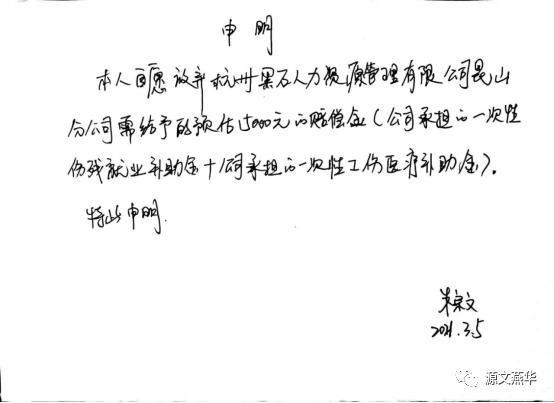 申明
本人自愿放弃杭州黑石人力资源管理有限公司昆山
分公司需给予的预估15000元的赔偿金(公司承担的一次性
伤残就业补助金+公司承担的一次性工伤医疗补助金)。
特此申明.
朱文
2021.3.5
源文燕华